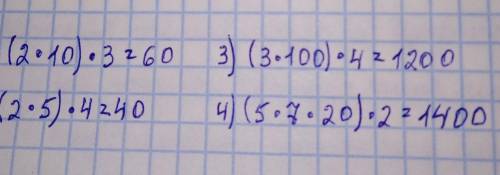 (2·10)·3=60 3) (3·100)·4=1200
(2·5)·4=40 4) (5·7·20)·2=1400